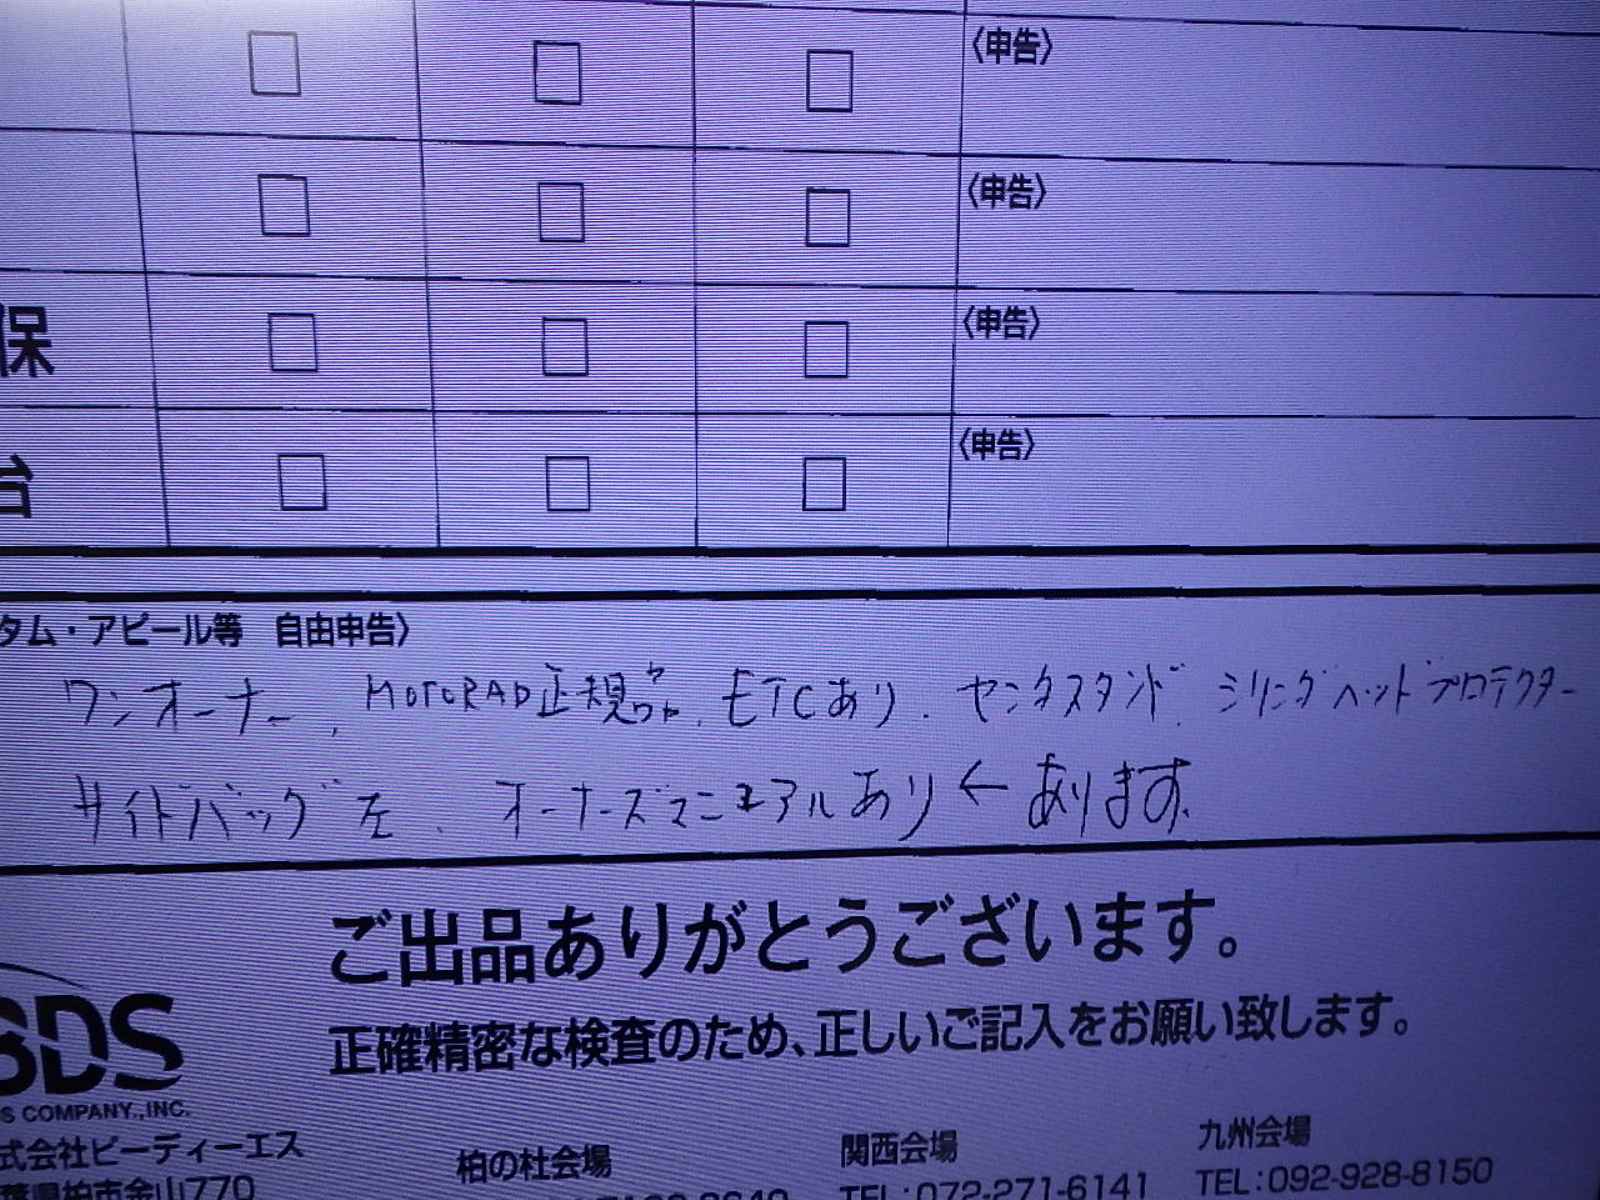 〈申告〉
〈申告〉
保
〈申告〉
台
〈申告〉
タム・アピール等 自由申告〉
ワンオーナー、MOTORAD正規、ETCあり、センタスタンド、シリンダヘッドプロテクター
サイドバッグ左、オーナーズマニュアルあり ← あります。
ご出品ありがとうございます。
正確精密な検査のため、正しいご記入をお願い致します。
BDS
S COMPANY.,INC.
式会社ビーディーエス
葉県柏市金山770
柏の杜会場
関西会場
TEL:072-271-6141
九州会場
TEL:092-928-8150